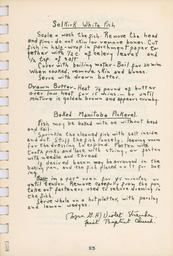 Selkirk White Fish
Scale & wash the fish. Remove the head
and fins do not skin nor remove bones. Cut
fish in half - wrap in parchment paper to-
gether with 1/2 c of celery leaves and
1/2 tsp of salt.
Cover with boiling water. Boil for 20 min
When cooked, remove skin and bones.
Serve with drawn butter.
Drawn Butter. Heat 1/4 pound of butter
over low heat for 15 min - or until
mixture is golden brown and appears crumby.
Baked Manitoba Pickerel
Fish may be baked with or without head
and tail.
Sprinkle the cleaned fish with salt inside
and out. Stuff the fish loosely, leaving room
for the dressing to expand. Fasten with
tooth picks and lace with string, or fasten
with needle and thread.
A desired bacon may be arranged in the
baking pan, and the fish placed on it for bak-
ing.
Bake in a 450° oven for minutes or
until tender. Remove carefully from the pan,
take out fasteners used to retain dressing in
the fish.
Serve whole on a hot platter, with parsley
and lemon wedges.
Mrs. G. H. Violet
First Baptist Church.
53